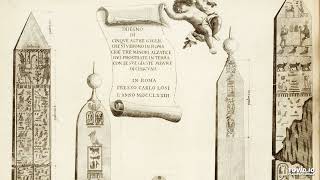 DISEGNO
DI
CINQUE ALTRE GUGLIE
CHE SI VEDONO IN ROMA
CIOÈ TRE MINORI ALZATE E
DUE PROSTRATE IN TERRA
CON LE STESSE MISURE
DI CIASCUNA
IN ROMA
PRESSO CARLO LOSI
L'ANNO MDCCLXXIII
invideo.io